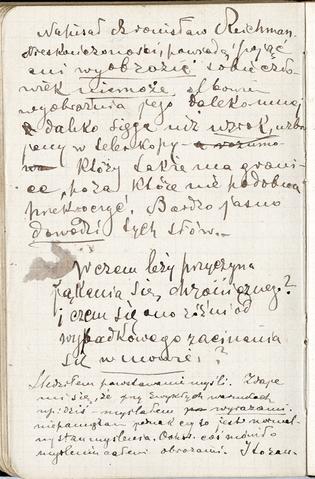 Napisał Bronisław Reichman.
Nieskończoności, powiada, pojąć
ani wyobrazić sobie czło-
wiek niemoże, albowiem
wyobraźnia jego daleko
daleko sięga niż wzrok, uzbro
jony w teleskopy
Który także ma grani-
ce, poza które nie podobna
przekroczyć. Bardzo jasno
dowodzi tych słów.
W czem leży przyczyna
jąkania się, chronicznego?
i czem się ono różni od
wypadkowego zacinania
się w mowie?
powstawanie myśli. Zdaje
mi się, że przy zwykłych warunkach
myślałem wyrazami.
niepamiętam jednak czy to jest normal-
ny stan myślenia. coś
myślenia całemi obrazami.